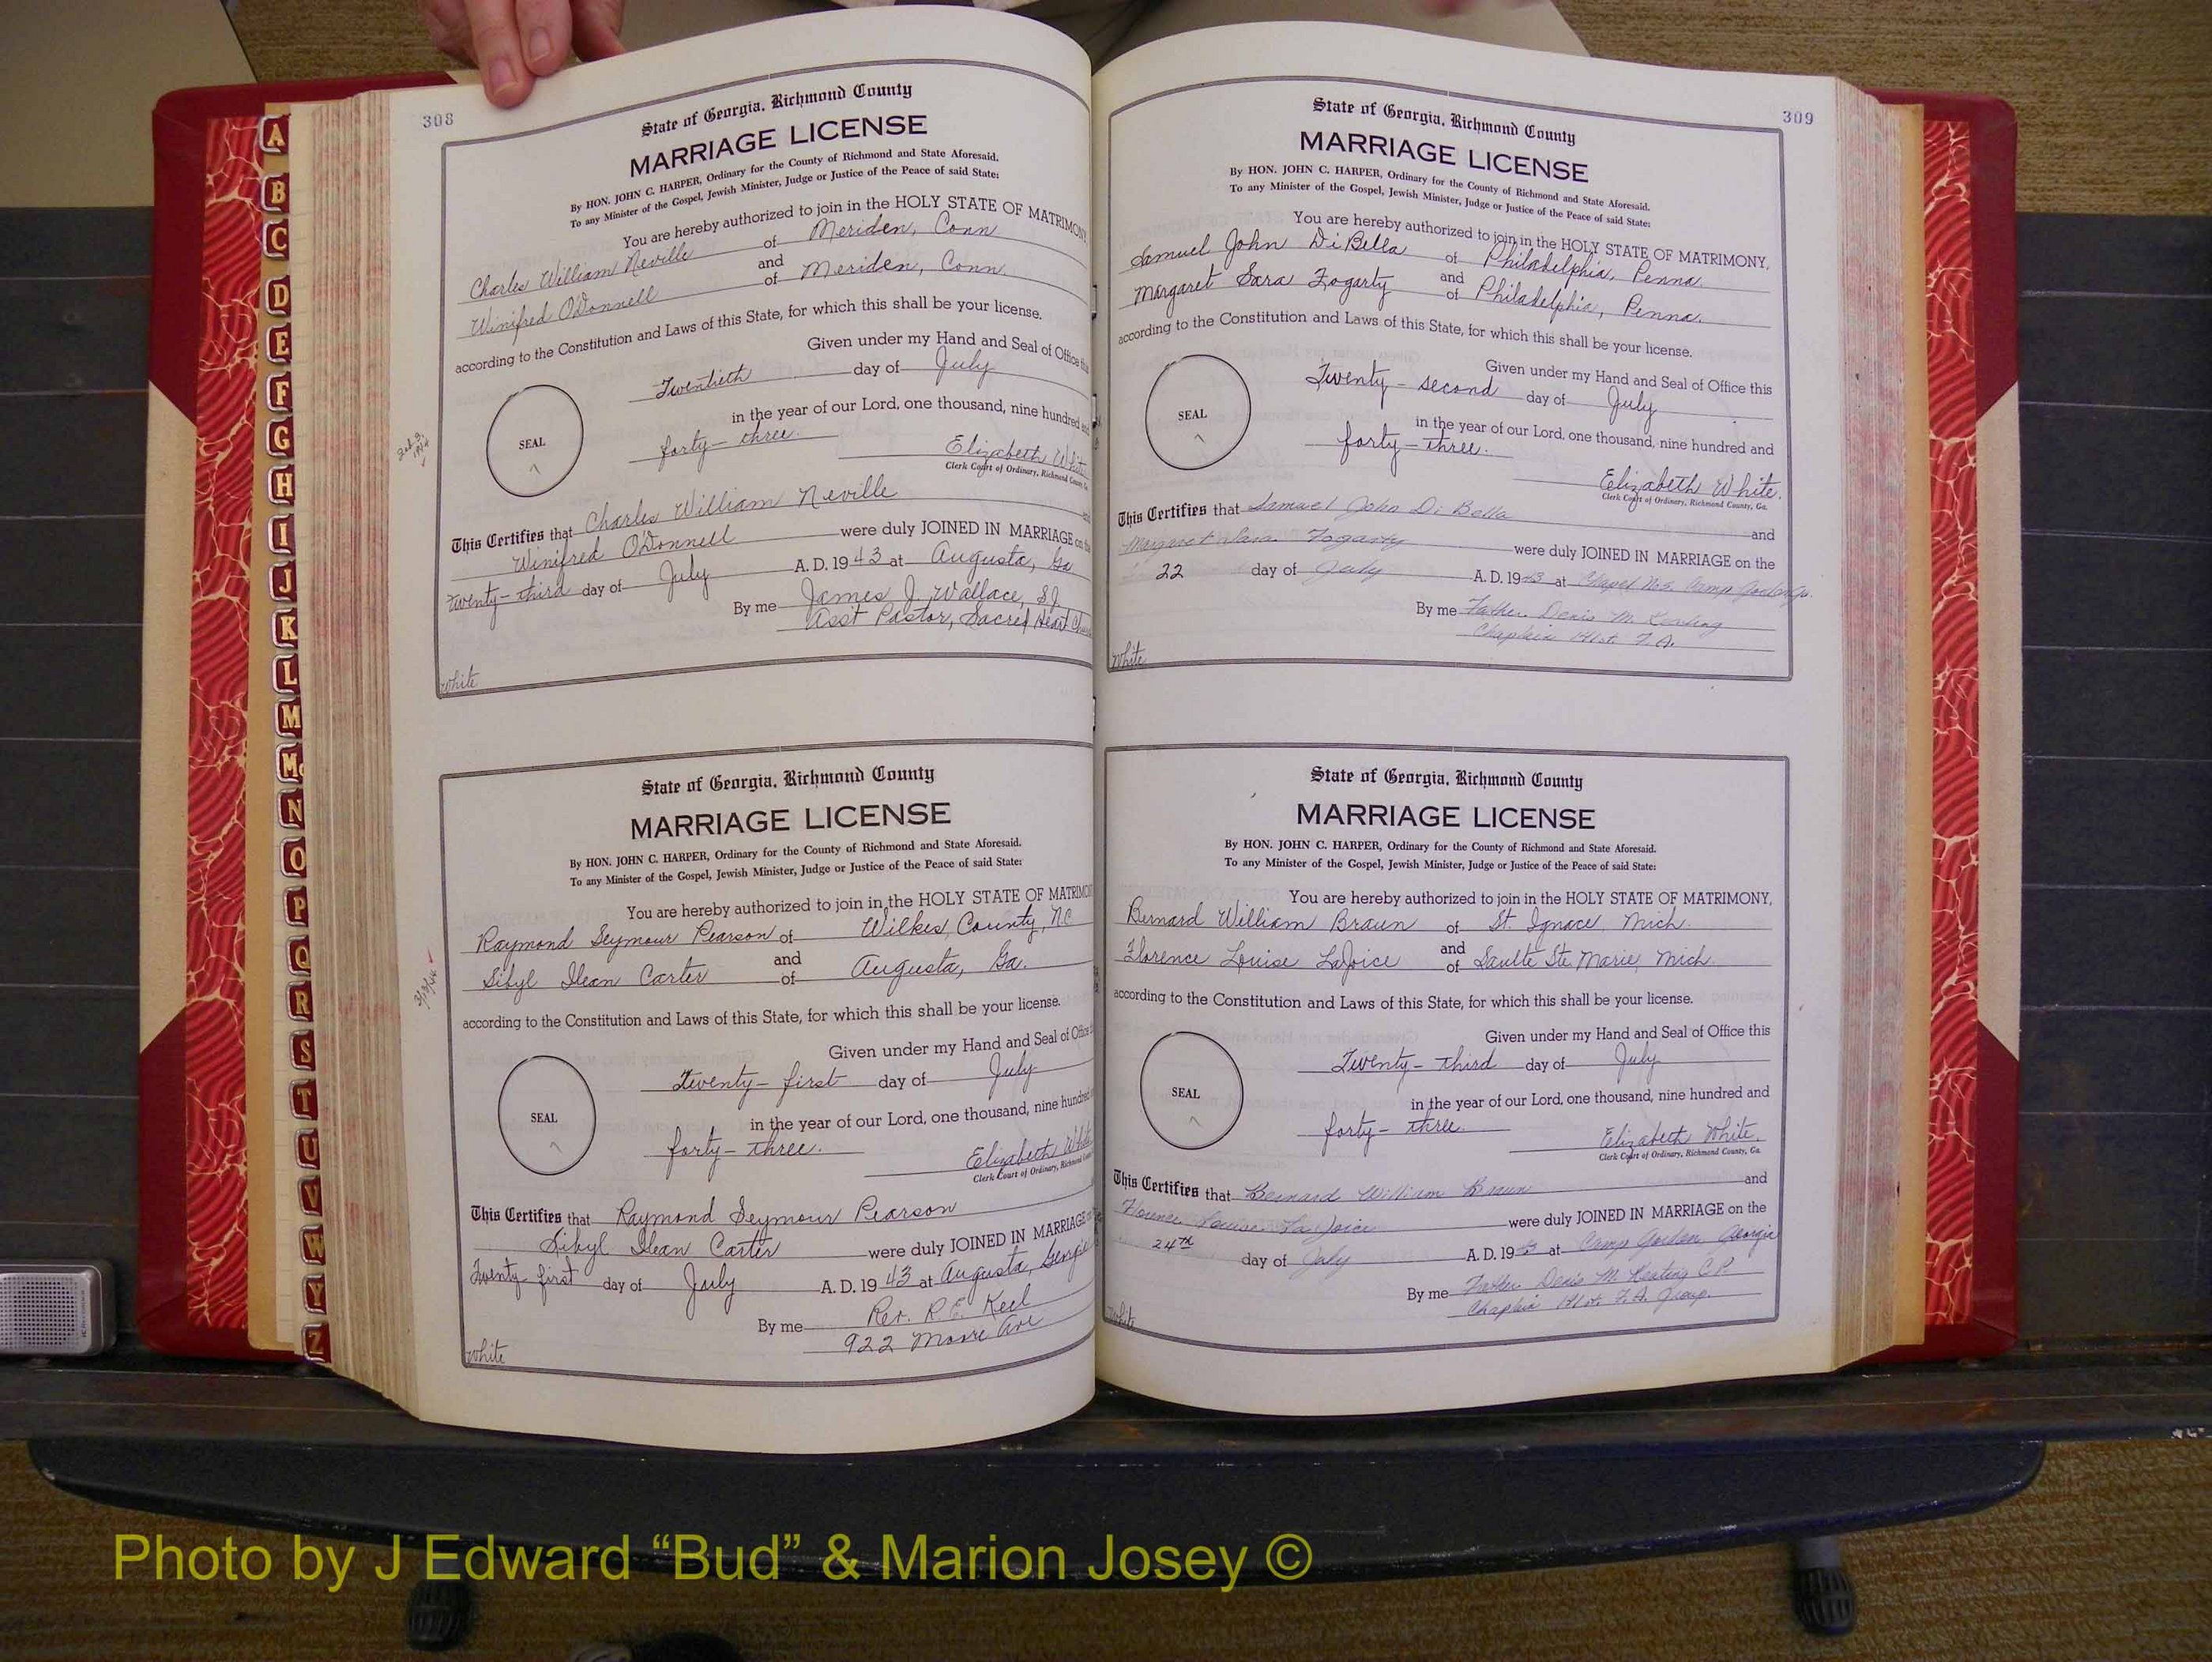 308
State of Georgia, Richmond County
MARRIAGE LICENSE
By HON. JOHN C. HARPER, Ordinary for the County of Richmond and State Aforesaid.
To any Minister of the Gospel, Jewish Minister, Judge or Justice of the Peace of said State:
You are hereby authorized to join in the HOLY STATE OF MATRIMONY
Charles William Neville of Meriden, Conn
and
Winifred O'Donnell of Meriden, Conn
according to the Constitution and Laws of this State, for which this shall be your license.
Given under my Hand and Seal of Office this
Twentieth day of July
in the year of our Lord, one thousand, nine hundred and
forty-three.
SEAL
Elizabeth White
Clerk Court of Ordinary, Richmond County, Ga.
This Certifies that Charles William Neville and
Winifred O'Donnell were duly JOINED IN MARRIAGE on the
twenty-third day of July A. D. 1943 at Augusta, Ga
By me James J Wallace, S.J.
Ass't Pastor, Sacred Heart
White
State of Georgia, Richmond County
MARRIAGE LICENSE
By HON. JOHN C. HARPER, Ordinary for the County of Richmond and State Aforesaid.
To any Minister of the Gospel, Jewish Minister, Judge or Justice of the Peace of said State:
You are hereby authorized to join in the HOLY STATE OF MATRIMO
Raymond Seymour Pearson of Wilkes County, NC
and
Sibyl Ilean Carter of Augusta, Ga.
according to the Constitution and Laws of this State, for which this shall be your license.
Given under my Hand and Seal of Office
Twenty-first day of July
in the year of our Lord, one thousand, nine hundred
forty-three.
SEAL
Elizabeth White
Clerk Court of Ordinary, Richmond
This Certifies that Raymond Seymour Pearson
Sibyl Ilean Carter were duly JOINED IN MARRIAGE
Twenty-first day of July A. D. 1943 at Augusta, Georgia
By me Rev. R. E.
922 Moore Ave
White
3/13/44
309
State of Georgia, Richmond County
MARRIAGE LICENSE
By HON. JOHN C. HARPER, Ordinary for the County of Richmond and State Aforesaid.
To any Minister of the Gospel, Jewish Minister, Judge or Justice of the Peace of said State:
You are hereby authorized to join in the HOLY STATE OF MATRIMONY,
Samuel John DiBella of Philadelphia, Penna.
and
Margaret Sara Fogarty of Philadelphia, Penna.
according to the Constitution and Laws of this State, for which this shall be your license.
Given under my Hand and Seal of Office this
Twenty-second day of July
in the year of our Lord, one thousand, nine hundred and
forty-three.
SEAL
Elizabeth White.
Clerk Court of Ordinary, Richmond County, Ga.
This Certifies that Samuel John Di Bella and
Margaret Sara Fogarty were duly JOINED IN MARRIAGE on the
22 day of July A. D. 1943 at Chapel No 5, Camp Gordon Ga.
By me Father Denis M. Keating
Chaplain 141st F. A.
White
State of Georgia, Richmond County
MARRIAGE LICENSE
By HON. JOHN C. HARPER, Ordinary for the County of Richmond and State Aforesaid.
To any Minister of the Gospel, Jewish Minister, Judge or Justice of the Peace of said State:
You are hereby authorized to join in the HOLY STATE OF MATRIMONY,
Bernard William Braun of St. Ignace, Mich.
and
Florence Louise LaJoice of Saulte Ste. Marie, Mich.
according to the Constitution and Laws of this State, for which this shall be your license.
Given under my Hand and Seal of Office this
Twenty-third day of July
in the year of our Lord, one thousand, nine hundred and
forty-three.
SEAL
Elizabeth White.
Clerk Court of Ordinary, Richmond County, Ga.
This Certifies that Bernard William Braun and
Florence Louise LaJoice were duly JOINED IN MARRIAGE on the
24th day of July A. D. 1943 at Camp Gordon, Georgia
By me Father Denis M. Keating C.P.
Chaplain 141st F.A. Group.
White
A
B
C
D
E
F
G
H
I
J
K
L
M
Mc
N
O
P
Q
R
S
T
U
V
W
Y
Z
Photo by J Edward “Bud” & Marion Josey ©